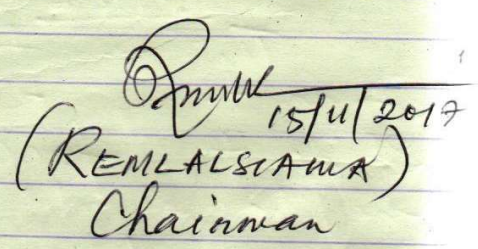 15/11/2017
(REMLALSIAMA)
Chairman